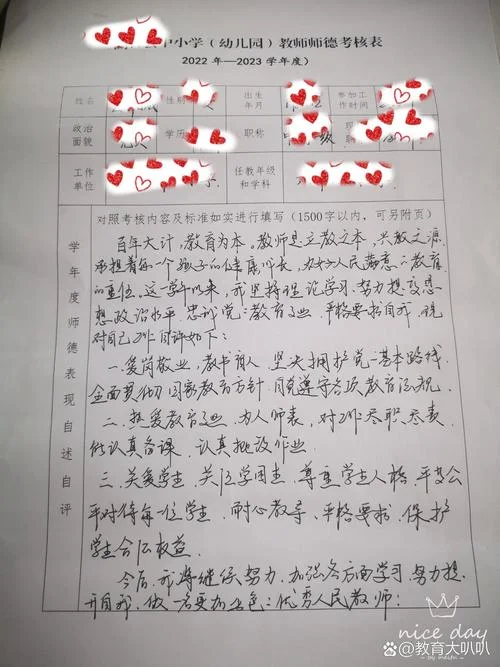 中小学（幼儿园）教师师德考核表
2022 年—2023 学年度）
姓名 性别 女 出生年月 参加工作时间
政治面貌 党员 学历 职称 现
工作单位 任教年级和学科
学年度师德表现自述自评
对照考核内容及标准如实进行填写（1500字以内，可另附页）
百年大计，教育为本，教师是立教之本，兴教之源，
承担着每一个孩子的健康成长，办好人民满意的教育
的重任。这一学年以来，我坚持理论学习，努力提高思
想政治水平，忠诚党的教育事业，严格要求自我，现
对自己工作自评如下：
一、爱岗敬业，教书育人 坚决拥护党的基本路线
全面贯彻国家教育方针 自觉遵守各项教育法规。
二、热爱教育事业，为人师表，对工作尽职尽责
能认真备课，认真批改作业
三、关爱学生 关注学困生，尊重学生人格，平等公
平对待每一位学生，耐心教导，严格要求，保护
学生合法权益。
今后，我将继续努力，加强各方面学习，努力提
升自我，做一名更加出色的优秀人民教师！
nice day
百家号/教育大叭叭